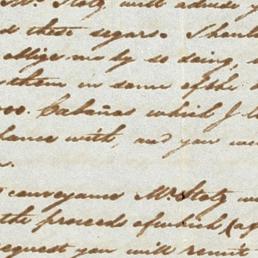 Mr. Stotz will advise y
d these segars. Should
oblige me by so doing,
them in some of the
00. Cabañas which I
chance with, and you
conveyance Mr. Stotz
the proceeds of which (a
request you will remit